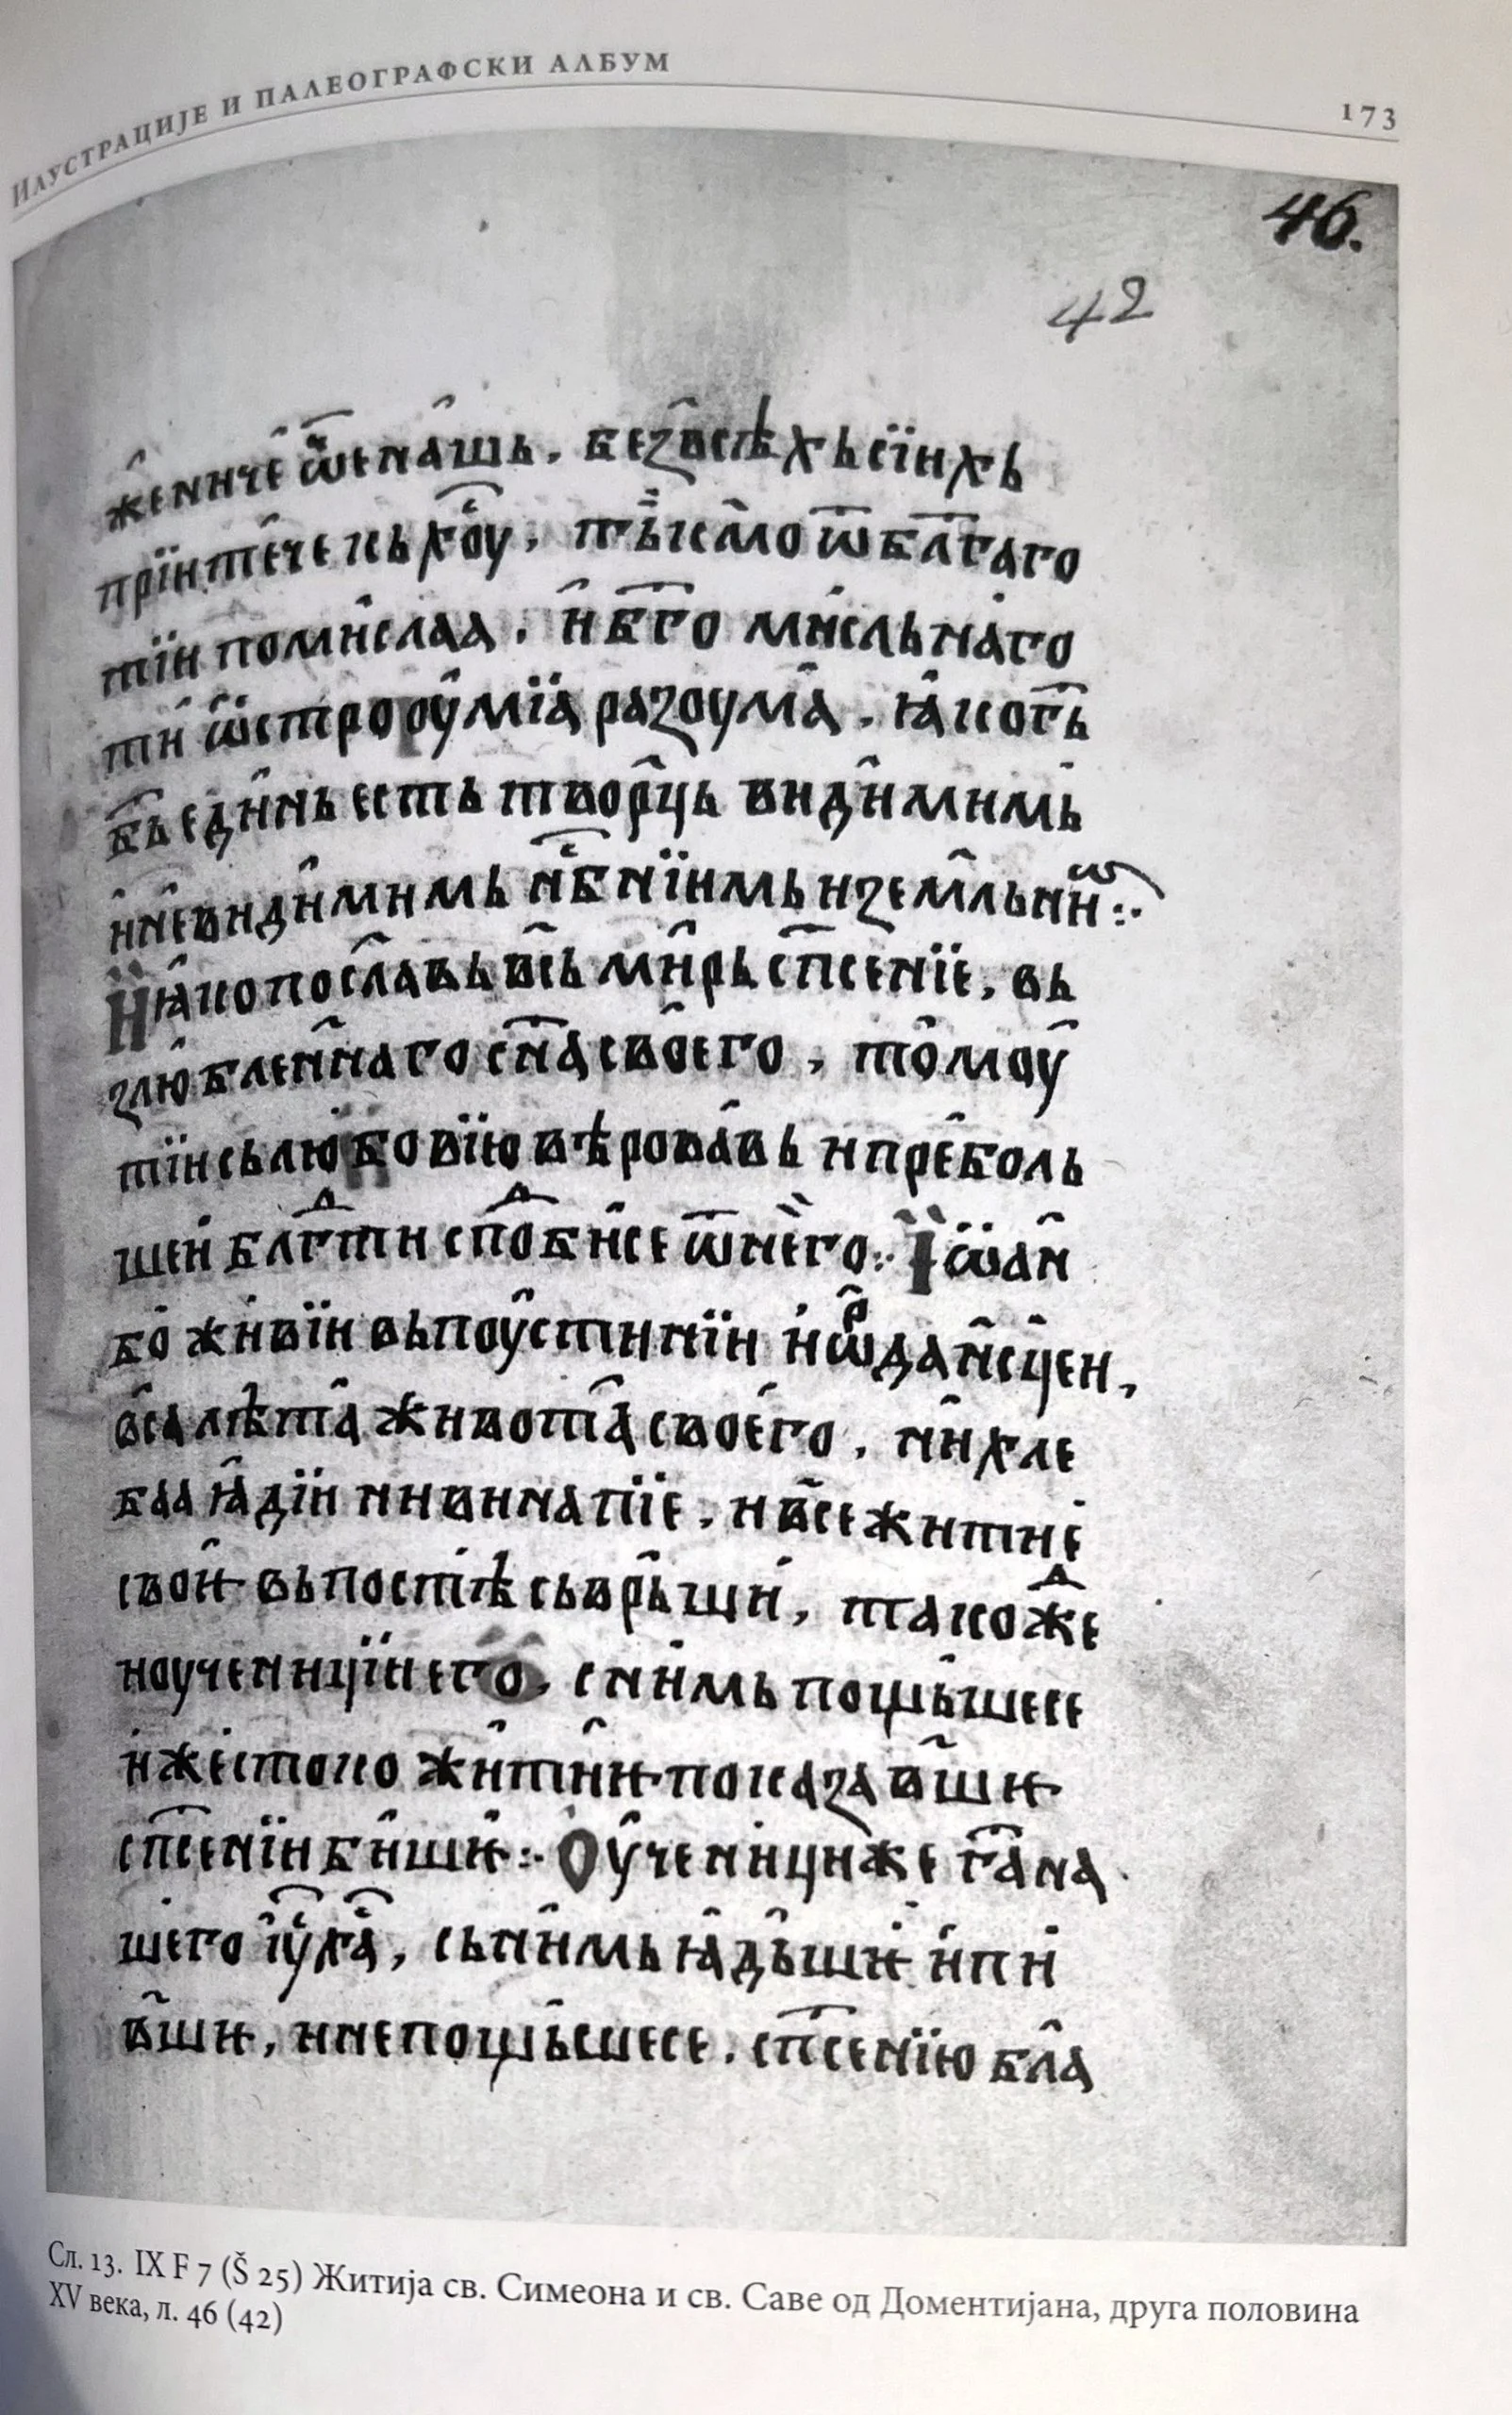 Илустрације и палеографски албум
173
46.
42
женниче ѿе нашь. без въсѣхь сїихь
прїитече кь хⷭ҇оу, тькмо ѿ бл҃гаго
тїи помислаа. и б҃го мисльнаго
ти ѡстрооумїа разоума. ꙗко г҃ь
б҃ь единь есть творць видимимь
и невидимимь нбⷭ҇нїимь и земльнїи:·
И ꙗко пославь въсь мирь сп҃сенїе, вь
злюбленнаго сн҃а своего, томоу
тїи сь любовїю вѣровавь и преболь
шеи блгⷣ҇ти спⷣ҇обисе ѿ него:· Іѡан
бо живїи вь поустинїи иѡрⷣдансцеи,
вса лѣта живота своего, ни хле
баа ꙗдїи ни вина пїе. и все житїе
свои вь постѣ сьврьши, такожⷣе
и оученицїи его, с нимь пощьшесе
и жестоко житїи показавши
сп҃сенїи биши:· Оученици же г҃а на
шего їⷭ҇у хⷭ҇а, сь нимь ꙗдьши и пи
вши, и не пощьшесе. сп҃сенїю бла
Сл. 13. IX F 7 (Š 25) Житија св. Симеона и св. Саве од Доментијана, друга половина
XV века, л. 46 (42)